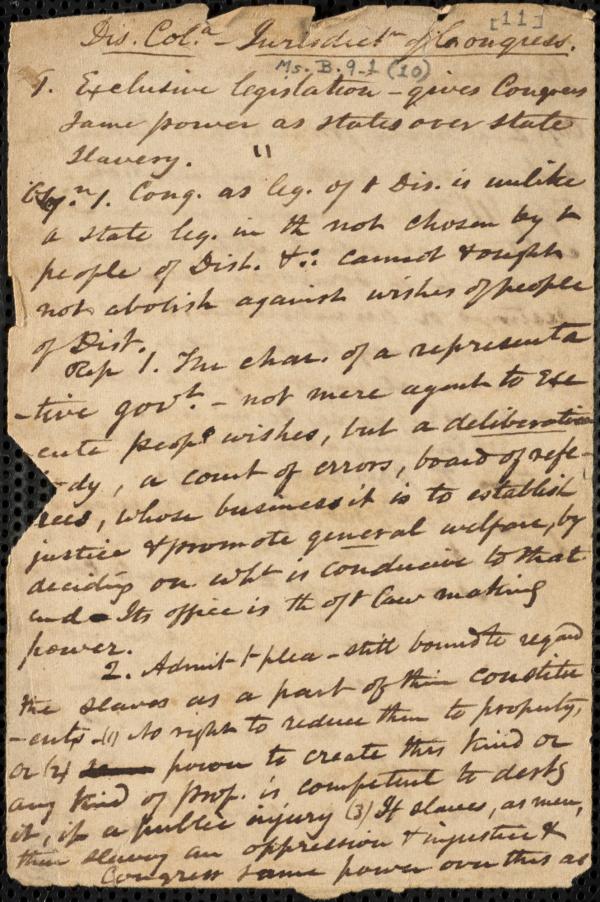 [11]
Dis. Col.a - Jurisdictn of Congress.
Ms. B. 9-1 (10)
1. Exclusive legislation - gives Congress
same power as states over state
slavery. "
1. Cong. as leg. of t Dis. is unlike
a state leg. in th not chosen by t
people of Dist. & ∴ cannot & ought
not abolish against wishes of people
of Dist.
Rep 1. The char. of a representa
-tive govt. - not mere agent to exe
-cute peop's wishes, but a deliberative
body, a court of errors, board of refe-
rees, whose business it is to establish
justice & promote general welfare, by
deciding on wht is conducive to that
end - Its office is th of t law making
power.
2. Admit t plea - still bound to regard
the slaves as a part of their constitu
-ents - (1) No right to reduce them to property,
or (2) power to create this kind or
any kind of prop. is competent to destroy
it, if a public injury (3) If slaves, as men,
then slavery an oppression & injustice &
Congress same power over this as